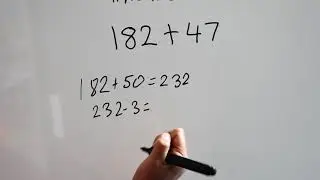 182 + 47
182 + 50 = 232
232 - 3 =